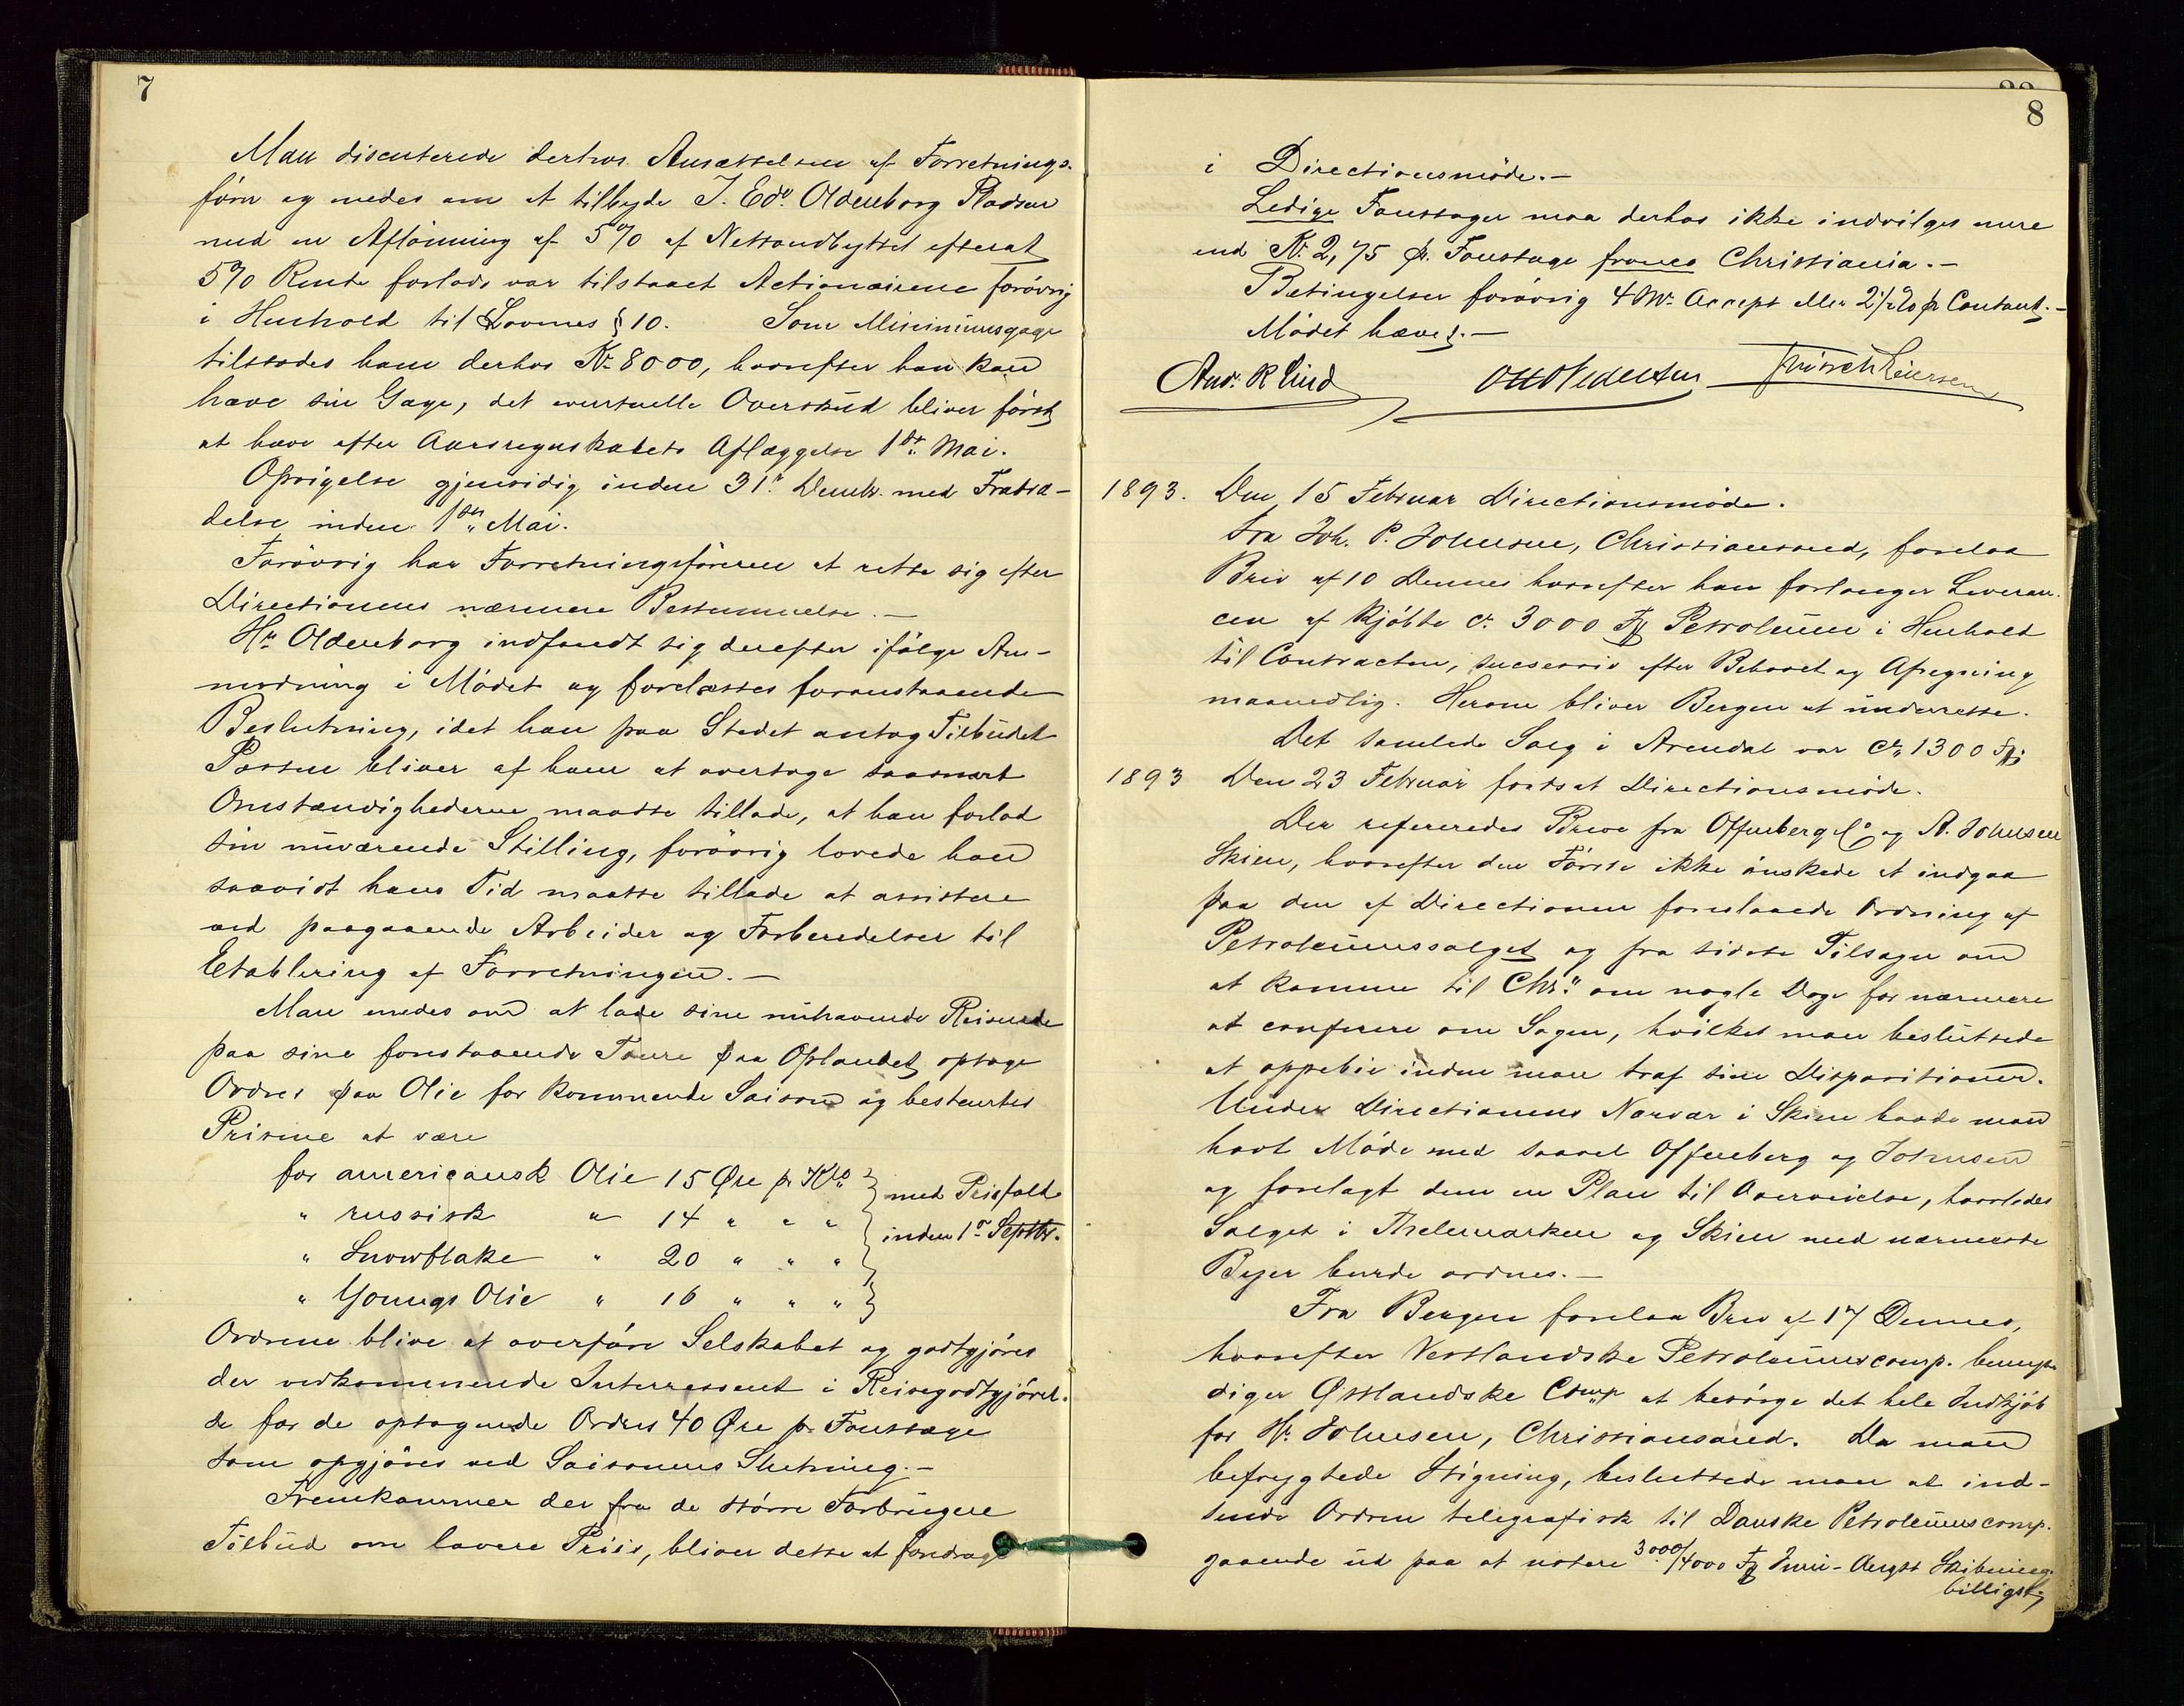 7
Man discuterede derhos Ansættelsen af Forretnings-
förer og enedes om at tilbyde J. Edv. Oldenborg Pladsen
med en Aflönning af 5% af Nettoudbyttet efterat
5% Rente forlods var tilstaaet Actionairene forövrig
i Henhold til Lovenes § 10. Som Minimumsgage
tilstodes ham derhos Kr 8000, hvorefter han kan
hæve sin Gage, det eventuelle Overskud bliver först
at hæve efter Aarsregnskabets Aflæggelse 1ste Mai.
Opsigelse gjensidig inden 31. Decmbr. med Fratræ-
delse inden 1ste Mai.
Forövrig har Forretningsföreren at rette sig efter
Directionens nærmere Bestemmelse. —
Hr Oldenborg indfandt sig derefter ifölge An-
modning i Mödet og forelæstes foranstaaende
Beslutning, idet han paa Stedet antog Tilbudet
Posten bliver af ham at overtage saasnart
Omstændighederne maatte tillade, at han forlod
sin nuværende Stilling, forövrig lovede han
saavidt hans Tid maatte tillade at assistere
ved paagaaende Arbeider og Forberedelser til
Etablering af Forretningen. —
Man enedes om at lade sine nuhavende Reisende
paa sine forestaaende Toure paa Oplandet optage
Ordres paa Olie for kommende Saison og bestemtes
Prisene at være
for americansk Olie 15 Øre pr Klo } med Prisfald
" russisk " 14 " " " } inden 1ste Septbr.
" Snowflake " 20 " " " }
" Youngs Olie " 16 " " " }
Ordrene blive at overföre Selskabet og godtgjöres
der vedkommende Interessent i Reisegodtgjörel-
se for de optagende Ordres 40 Øre pr Foustage
som opgjöres ved Saisonens Slutning. —
Fremkommer der fra de större Forbrugere
Tilbud om lavere Priis, bliver dette at foredrage
8
i Directionsmöde. —
Ledige Foustager maa derhos ikke indvilges mere
end Kr. 2,75 pr. Foustage franco Christiania. —
Betingelser forövrig 4 Mr. Accept eller 2½% pr Contant. —
Mödet hævet. —
And. R Lind Otto Pedersen
1893. Den 15 Februar Directionsmöde.
Fra Joh. P. Johnsen, Christiansand, forelaa
Brev af 10 Dennes hvorefter han forlanger Leveran-
cen af kjöbte ca 3000 Fg Petroleum i Henhold
til Contracten, sucsessiv efter Behovet og Afregning
maanedlig. Herom bliver Bergen at underrette.
Det samlede Salg i Arendal var ca 1300 Fg.
1893 Den 23 Februar fortsat Directionsmöde.
Der refereredes Breve fra Offenberg & Co og A. Johnsen
Skien, hvorefter den Förste ikke önskede at indgaa
paa den af Directionen foreslaaede Ordning af
Petroleumssalget og fra sidste Tilsagn om
at komme til Chra om nogle Dage for nærmere
at conferere om Sagen, hvilket man besluttede
at oppebie inden man traf sine Dispositioner.
Under Directionens Nærvær i Skien havde man
havt Möde med saavel Offenberg og Johnsen
og forelagt dem en Plan til Overveielse, hvorledes
Salget i Thelemarken og Skien med nærmeste
Byer burde ordnes. —
Fra Bergen forelaa Brev af 17 Dennes,
hvorefter Vestlandske Petroleumscomp. bemyn-
diger Østlandske Comp at besörge det hele Indkjöb
for Hr. Johnsen, Christiansand. Da man
befrygtede Stigning, besluttede man at ind-
sende Ordren telegrafisk til Danske Petroleumscomp.
gaaende ud paa at notere 3000/4000 Fg Juni-Augst Skibning
billigst.